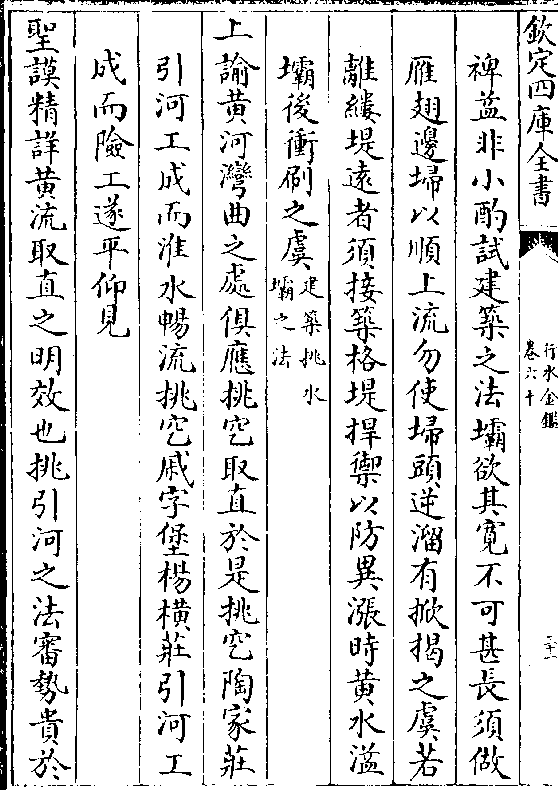 欽定四庫全書
行水金鑑
卷六十
三十一
裨益非小酌試建築之法壩欲其寬不可甚長須做
雁翅邊埽以順上流勿使埽頭逆溜有掀揭之虞若
離縷堤遠者須接築格堤捍禦以防異漲時黃水濫
壩後衝刷之虞
建築挑水
壩之法
上諭黃河灣曲之處俱應挑空取直於是挑空陶家莊
引河工成而淮水暢流挑空戚字堡楊橫莊引河工
成而險工遂平仰見
聖謨精詳黃流取直之明效也挑引河之法審勢貴於